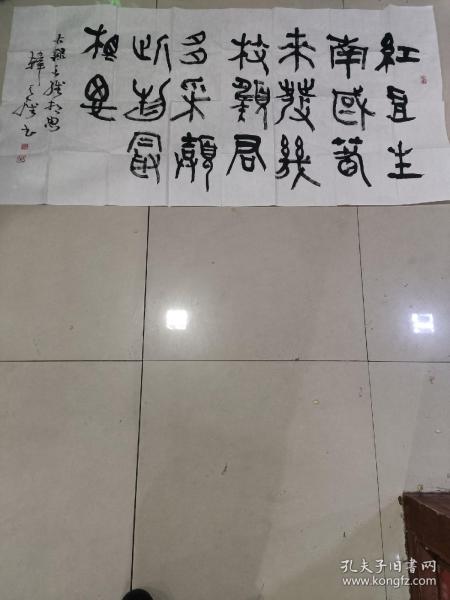 紅豆生
南國春
来發幾
枝願君
多采擷
此物最
相思
王維相思
孔夫子旧书网
www.kongfz.com